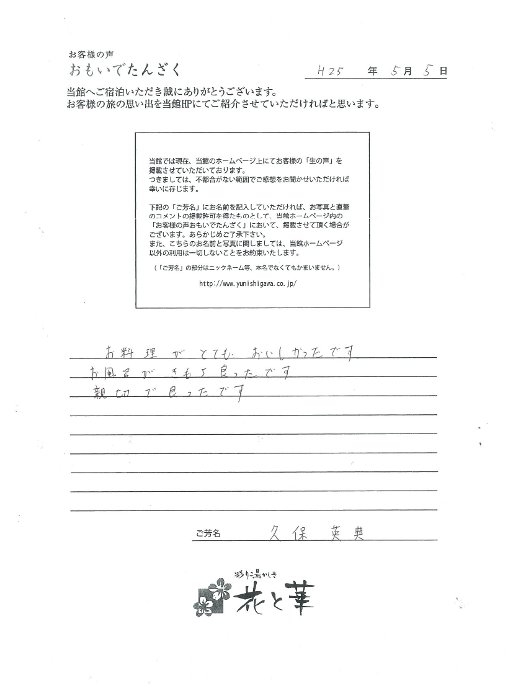 お客様の声
おもいでたんざく
H25 年 5 月 5 日
当館へご宿泊いただき誠にありがとうございます。
お客様の旅の思い出を当館HPにてご紹介させていただければと思います。
当館では現在、当館のホームページ上にてお客様の「生の声」を
掲載させていただいております。
つきましては、不都合がない範囲でご感想をお聞かせいただければ
幸いに存じます。
下記の「ご芳名」にお名前を記入していただければ、お写真と直筆
のコメントの掲載許可を得たものとして、当館ホームページ内の
「お客様の声おもいでたんざく」において、掲載させて頂く場合が
ございます。あらかじめご了承下さい。
また、こちらのお名前と写真に関しましては、当館ホームページ
以外の利用は一切しないことをお約束いたします。
(「ご芳名」の部分はニックネーム等、本名でなくてもかまいません。)
http://www.yunishigawa.co.jp/
お料理がとてもおいしかったです
お風呂がきもち良ったです
親切で良ったです
ご芳名 久保 英典
彩り湯かしき
花と華